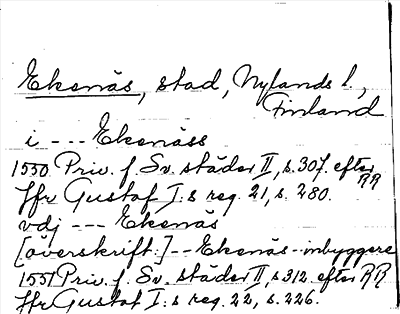 Ekenäs, stad, Nylands l.,
Finland
i --- Ekenäss
1550 Priv. f. Sv. städer II, s. 307. efter RR
Jfr Gustaf I:s reg. 21, s. 280.
vdj --- Ekenäs
[överskrift:] -- Ekenäs-inbyggere
1551 Priv. f. Sv. städer II, s. 312. efter RR
Jfr Gustaf I:s reg. 22, s. 226.